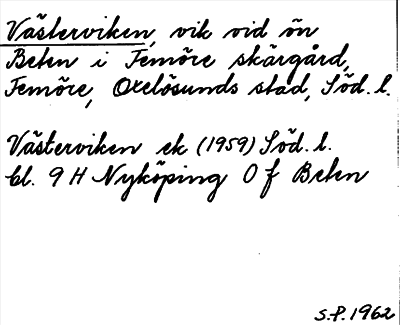 Västerviken, vik vid ön
Beten i Femöre skärgård,
Femöre, Oxelösunds stad, Söd. l.
Västerviken ek (1959) Söd. l.
bl. 9 H Nyköping 0 f Beten
S.P. 1962